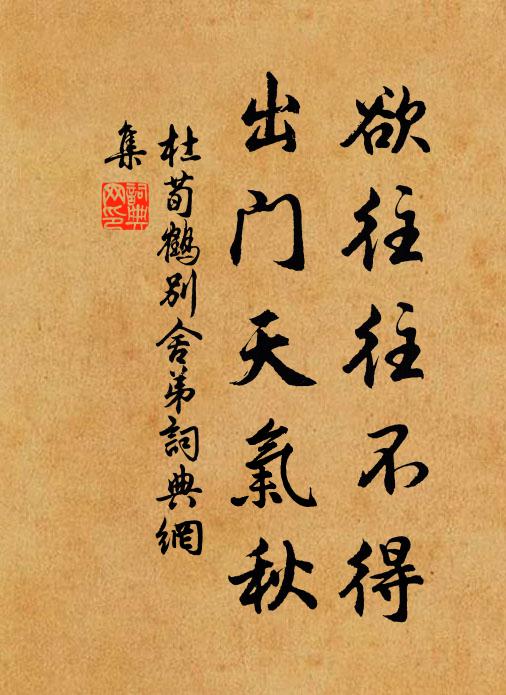 欲往往不得
出门天氣秋
杜荀鶴別舍弟詞典網
集
詞典
网印